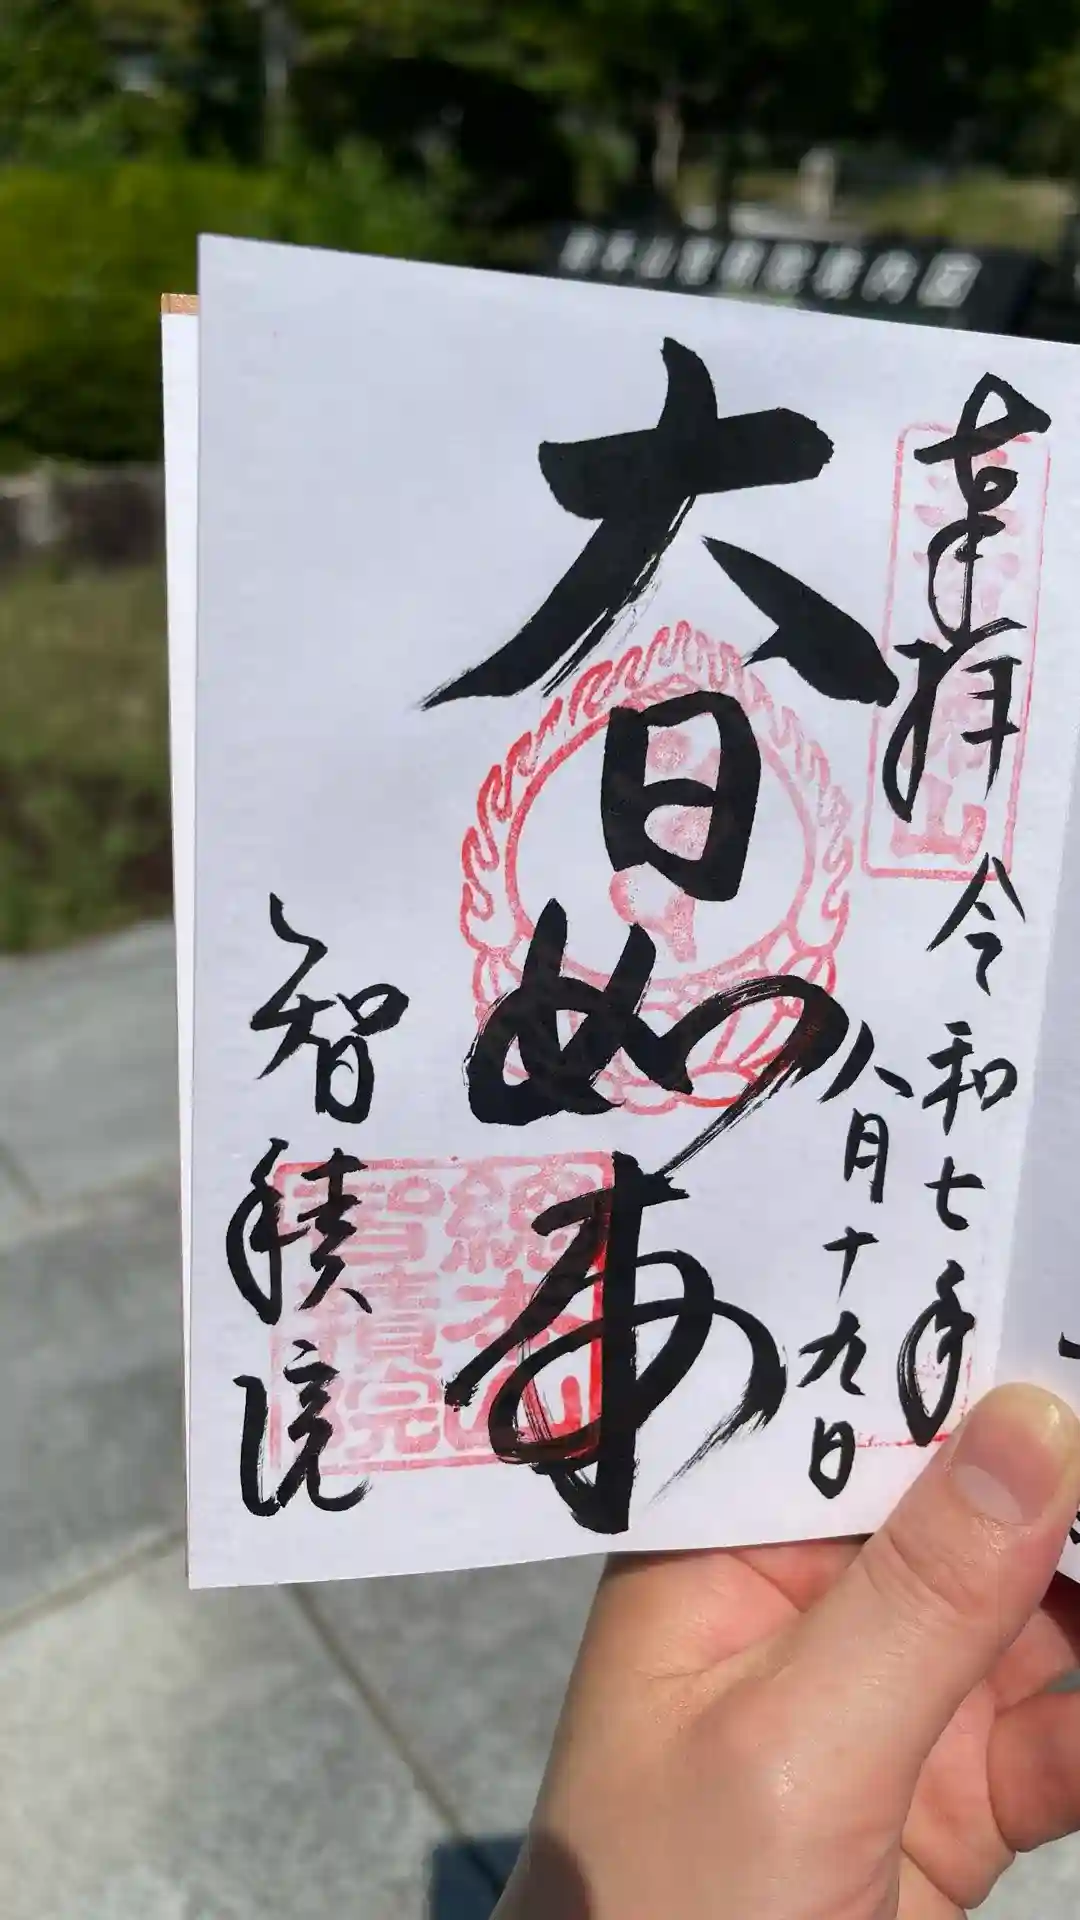 奉拝
令和七年
八月十九日
大日如来
智積院
総本山
智積院